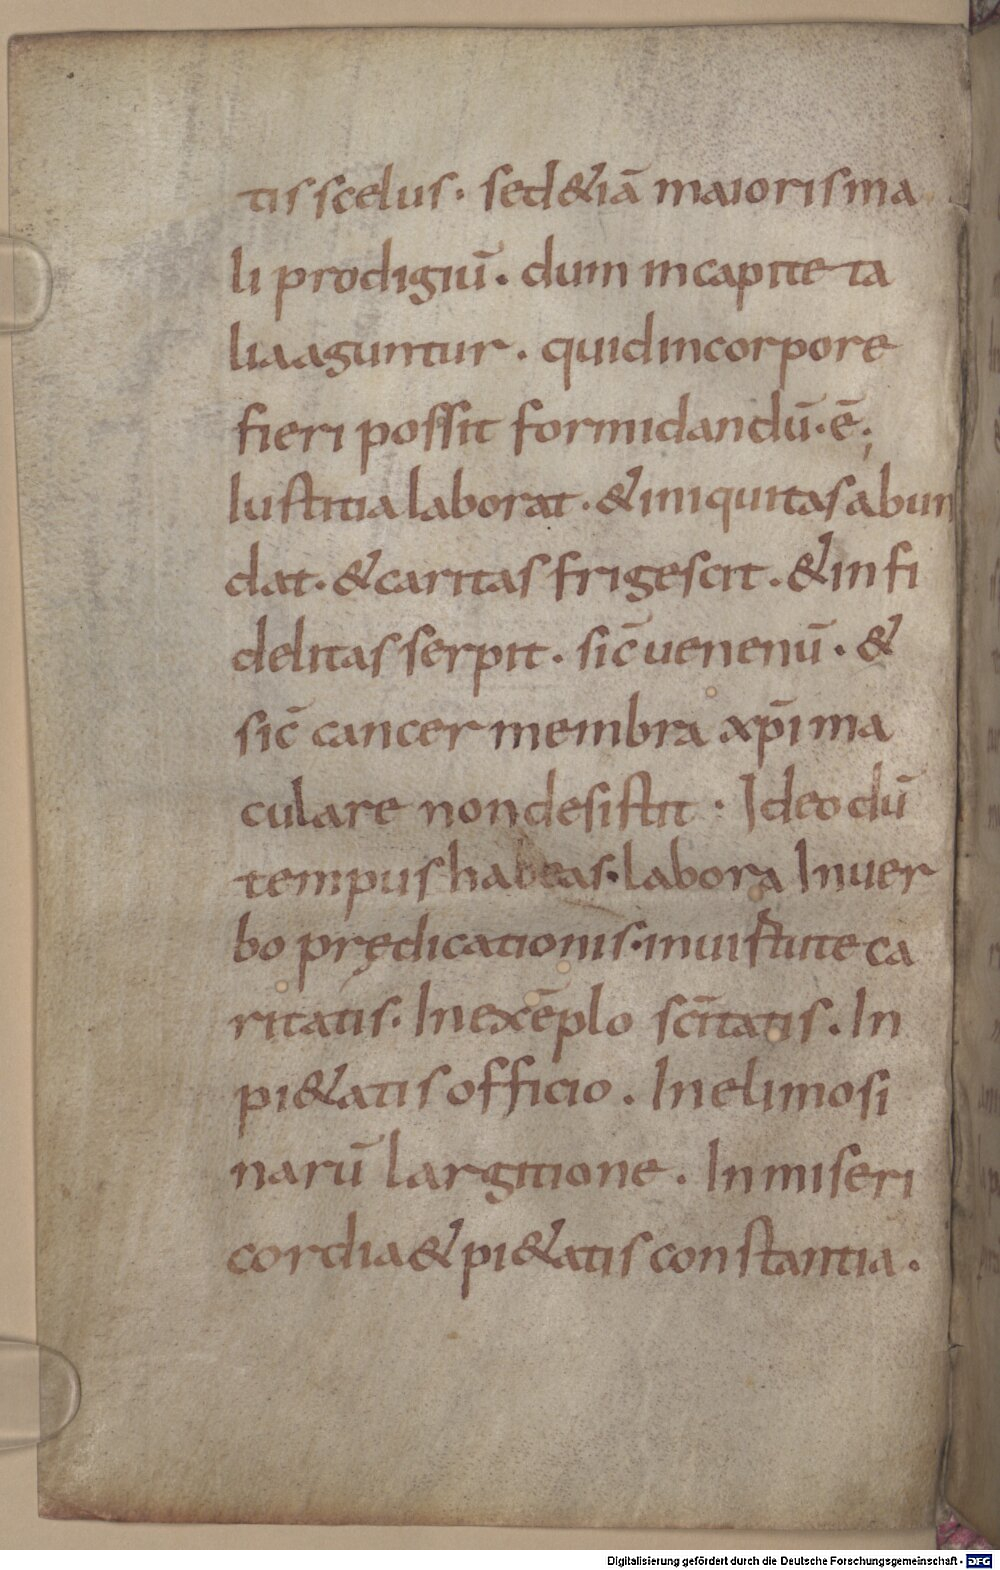 tis scelus. sed &iā maioris ma
li prodigiū. dum in capite ta
lia aguntur. quid in corpore
fieri possit formidandū. ē;
Iustitia laborat. & iniquitas abun
dat. & caritas frigescit. & infi
delitas serpit. sic̄ uenenū. &
sic̄ cancer membra xp̄i ma
culare non desistit. Ideo dū
tempus habeas. labora In uer
bo prędicationis. in uirtute ca
ritatis. In exēplo sc̄itatis. In
pi&atis officio. In elimosi
narū largitione. In miseri
cordia & pi&atis constantia.
Digitalisierung gefördert durch die Deutsche Forschungsgemeinschaft - DFG